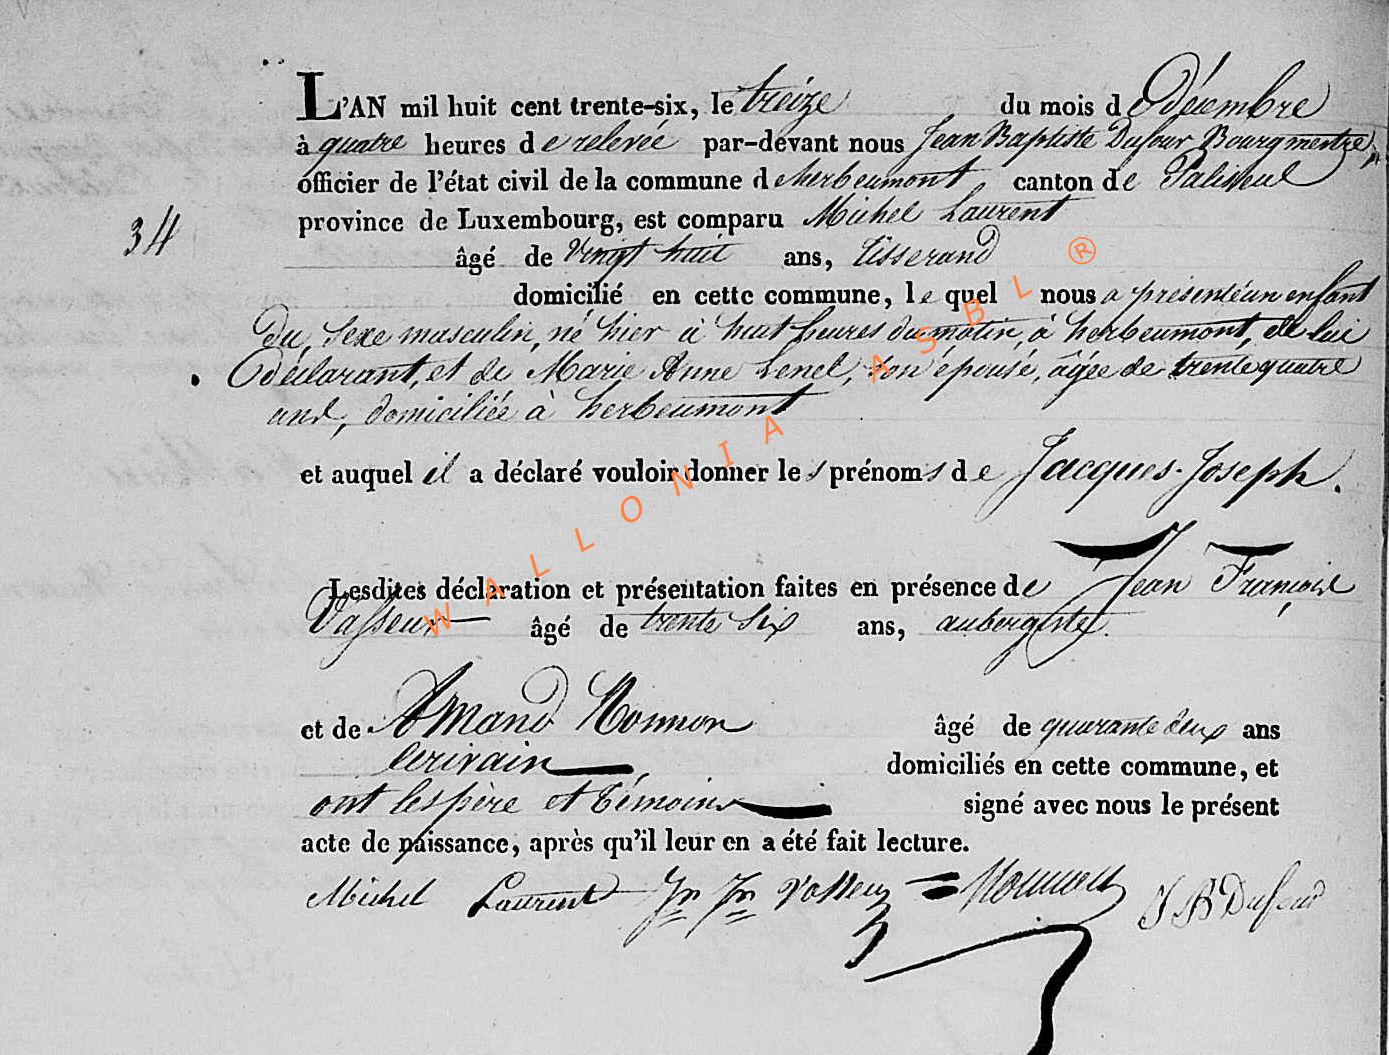 L'AN mil huit cent trente-six, le treize du mois de décembre
à quatre heures de relevée par-devant nous Jean Baptiste Dufour Bourgmentre,
officier de l'état civil de la commune d'herbeumont, canton de Paliseul
province de Luxembourg, est comparu Michel Laurent
34
âgé de vingt huit ans, tisserand
domicilié en cette commune, lequel nous a présenté un enfant
du sexe masculin, né hier à huit heures du matin, à herbeumont, de lui
déclarant, et de Marie Anne Lenel, son épouse, âgée de trente quatre
ans, domiciliée à herbeumont
et auquel il a déclaré vouloir donner les prénoms de Jacques-Joseph.
Lesdites déclaration et présentation faites en présence de Jean François
Vasseur âgé de trente six ans, aubergiste.
et de Armand Monnon âgé de quarante deux ans
écrivain domiciliés en cette commune, et
ont les père et témoins signé avec nous le présent
acte de naissance, après qu'il leur en a été fait lecture.
Michel Laurent Jn Jn Vasseur Monnon J B Dufour
WALLONIA ASBL ®